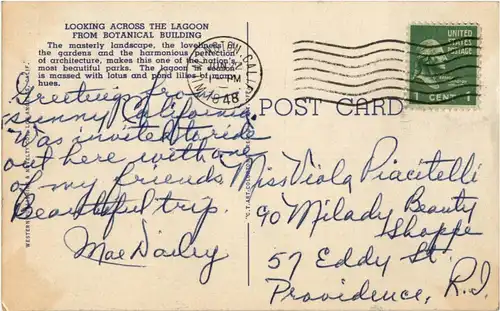 LOOKING ACROSS THE LAGOON
FROM BOTANICAL BUILDING
The masterly landscape, the loveliness of
the gardens and the harmonious perfection
of architecture, makes this one of the nation's
most beautiful parks. The lagoon in season
is massed with lotus and pond lilies of many
hues.
CAL.
PM
1948
UNITED
STATES
POSTAGE
1 CENT 1
POST CARD
Greetings from
Sunny California.
Was invited to ride
out here with one
of my friends
Beautiful trip.
Mae Dailey
Miss Viola Piacitelli
℅ Milady Beauty
Shoppe
57 Eddy St.
Providence, R.I.